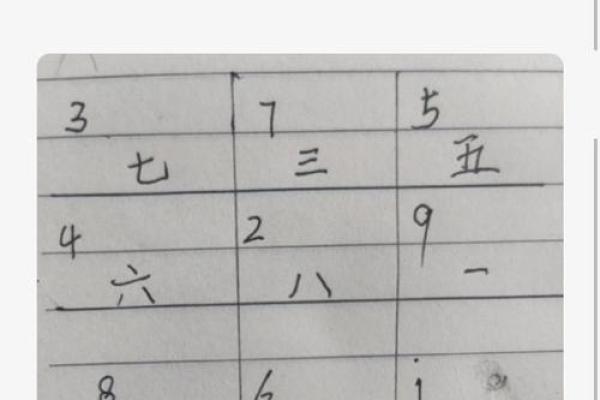 3 7 5
七 三 五
4 2 9
六 八 一
8 6 1